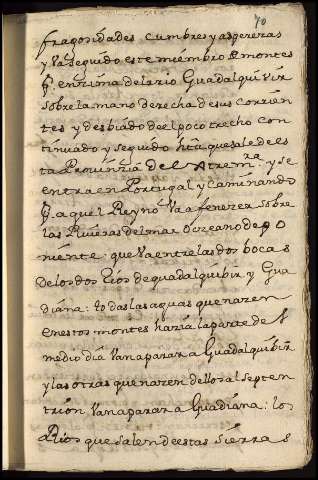 70
fragosidades cumbres y asperezas
y va seguido este miembro de montes
p.r enzima del rio Guadalquivir
sobre la mano derecha de sus corrien
tes y desbiado de el poco trecho con
tinuado y seguido h.ta que sale de es
ta Provinzia de Estrem.ra y se
entra en Portugal y caminando
p.r aquel Reyno va a fenezer sobre
las Riuieras del mar Ozeano de po
niente: que va entre las dos bocas
de los dos Rios de guadalquibir y Gua
diana: todas las aguas que nazen
en estos montes hazia la parte de l
medio dia van a parar a Guadalquibir
y las otras que nazen de llos al septen
trion van a parar a Guadiana: los
Rios que salen de estas sierras